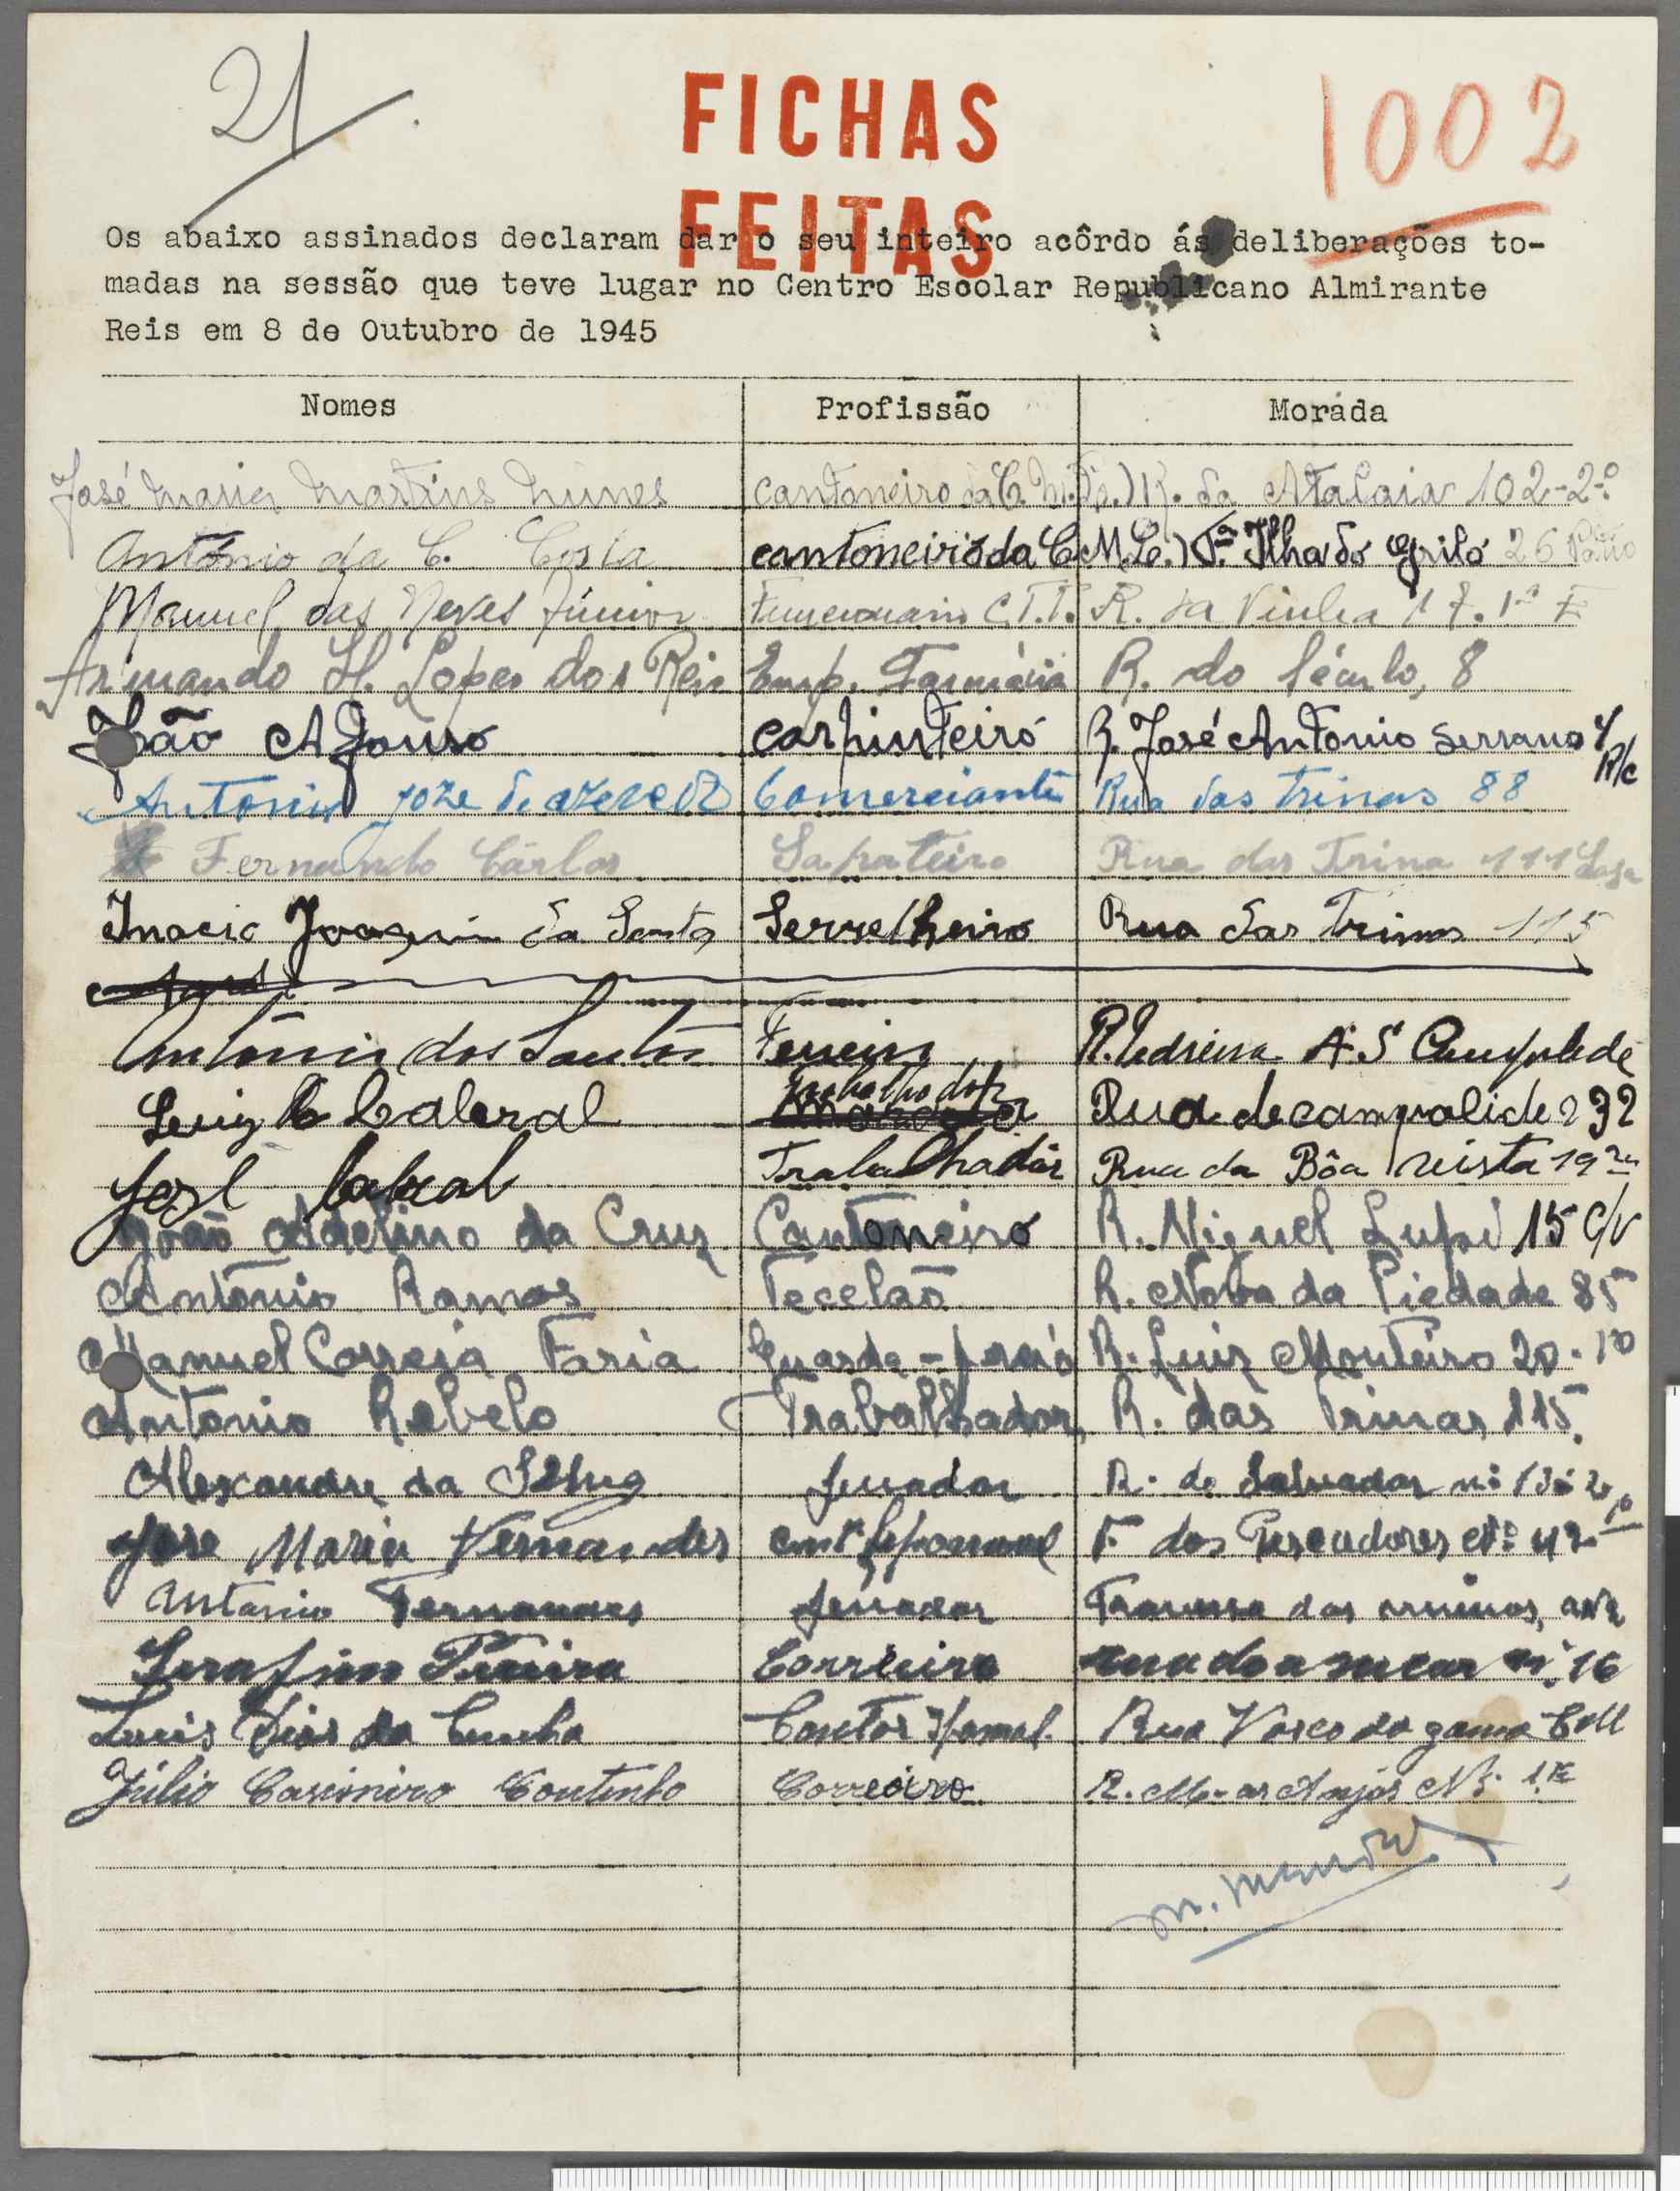 21
FICHAS
FEITAS
1002
Os abaixo assinados declaram dar o seu inteiro acôrdo ás deliberações to-
madas na sessão que teve lugar no Centro Escolar Republicano Almirante
Reis em 8 de Outubro de 1945
Nomes Profissão Morada
José Maria Martins Nunes cantoneiro da C. M. R. da Atalaia 102-2º
António da C. Costa cantoneiro da C. M. L. Ilha do Grilo 26
Manuel das Neves Júnior C.T.T. R. da Vinha 17. 1º E
Armando H. Lopes dos Reis Emp. Farmácia R. do Século, 8
João Afonso carpinteiro R. José Antonio Serrano R/c
Antonio joze de azeredo Comerciante Rua das Trinas 88
Fernando Cárlos Sapateiro Rua das Trina 111 Loja
Inacio Joaquim da Santa Serrelheiro Rua das Trinas 115
António dos Santos Ferreiro R. Pedreira A. S. Campolide
Luiz C Cabral Trabalhador Rua de campolide 232
José Cabral Trabalhadôr Rua da Bôa vista 19
João Adelino da Cruz Cantoneiro R. Miguel Lupi 15 c/v
António Ramos Tecelão R. Nova da Piedade 85
Manuel Correia Faria Guarda- R. Luiz Monteiro 20.
António Rebelo Trabalhador R. das Trinas 115
Alexandre da R. do Salvador nº 13
José Maria Fernandes dos Pescadores Nº 42
Antonio Fernandes Travessa das
Serafim Pereira Correeiro nº 16
Luis Dias da Cunha Rua Vasco da gama
Júlio Casimiro Coutinho Correeiro R. Anjos